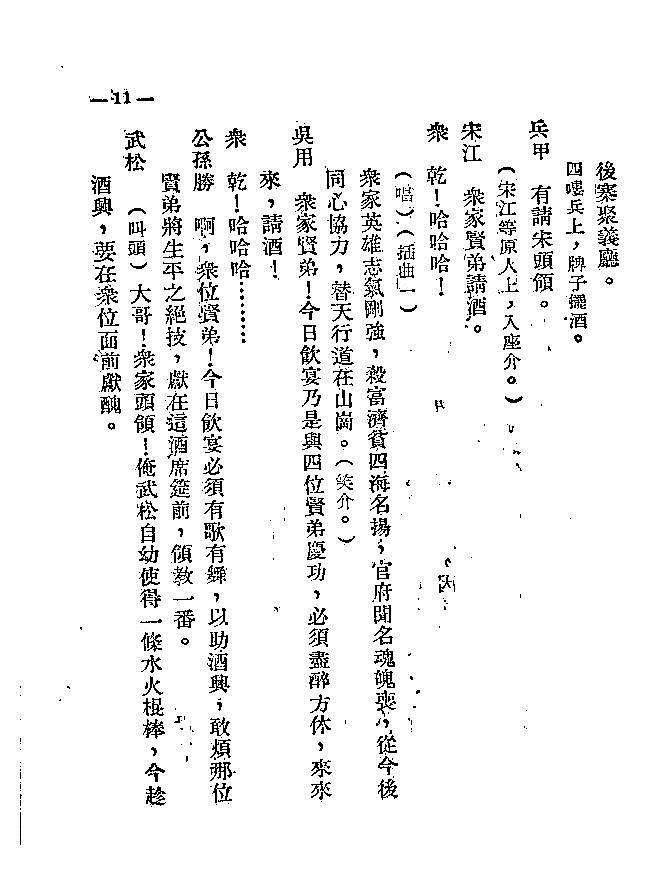 後寨聚義廳。
四嘍兵上，牌子擺酒。
兵甲　有請宋頭領。
（宋江等原人上，入座介。）
宋江　衆家賢弟請酒。
衆　乾！哈哈哈！
（唱）（插曲一）
衆家英雄志氣剛強，殺富濟貧四海名揚，官府聞名魂魄喪，從今後
同心協力，替天行道在山崗。（笑介。）
吳用　衆家賢弟！今日飲宴乃是與四位賢弟慶功，必須盡醉方休，來來
來，請酒！
衆　乾！哈哈哈………
公孫勝　啊，衆位賢弟！今日飲宴必須有歌有舞，以助酒興，敢煩那位
賢弟將生平之絕技，獻在這酒席筵前，領教一番。
武松　（叫頭）大哥！衆家頭領！俺武松自幼使得一條水火棍棒，今趁
酒興，要在衆位面前獻醜。
—11—